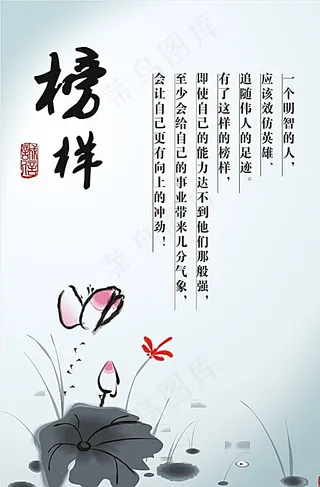 榜样
一个明智的人，
应该效仿英雄、
追随伟人的足迹。
有了这样的榜样，
即使自己的能力达不到他们那般强，
至少会给自己的事业带来几分气象，
会让自己更有向上的冲劲！